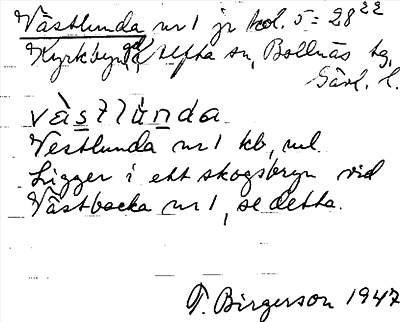 Västlunda nr 1 jr kol. 5= 28²²
Kyrkbyn, gd, Alfta sn, Bollnäs tg,
Gävl. l.
vàstlùnda.
Vestlunda nr 1 kb, ml.
Ligger i ett skogsbryn vid
Västbacka nr 1, se detta.
T. Birgerson 1947